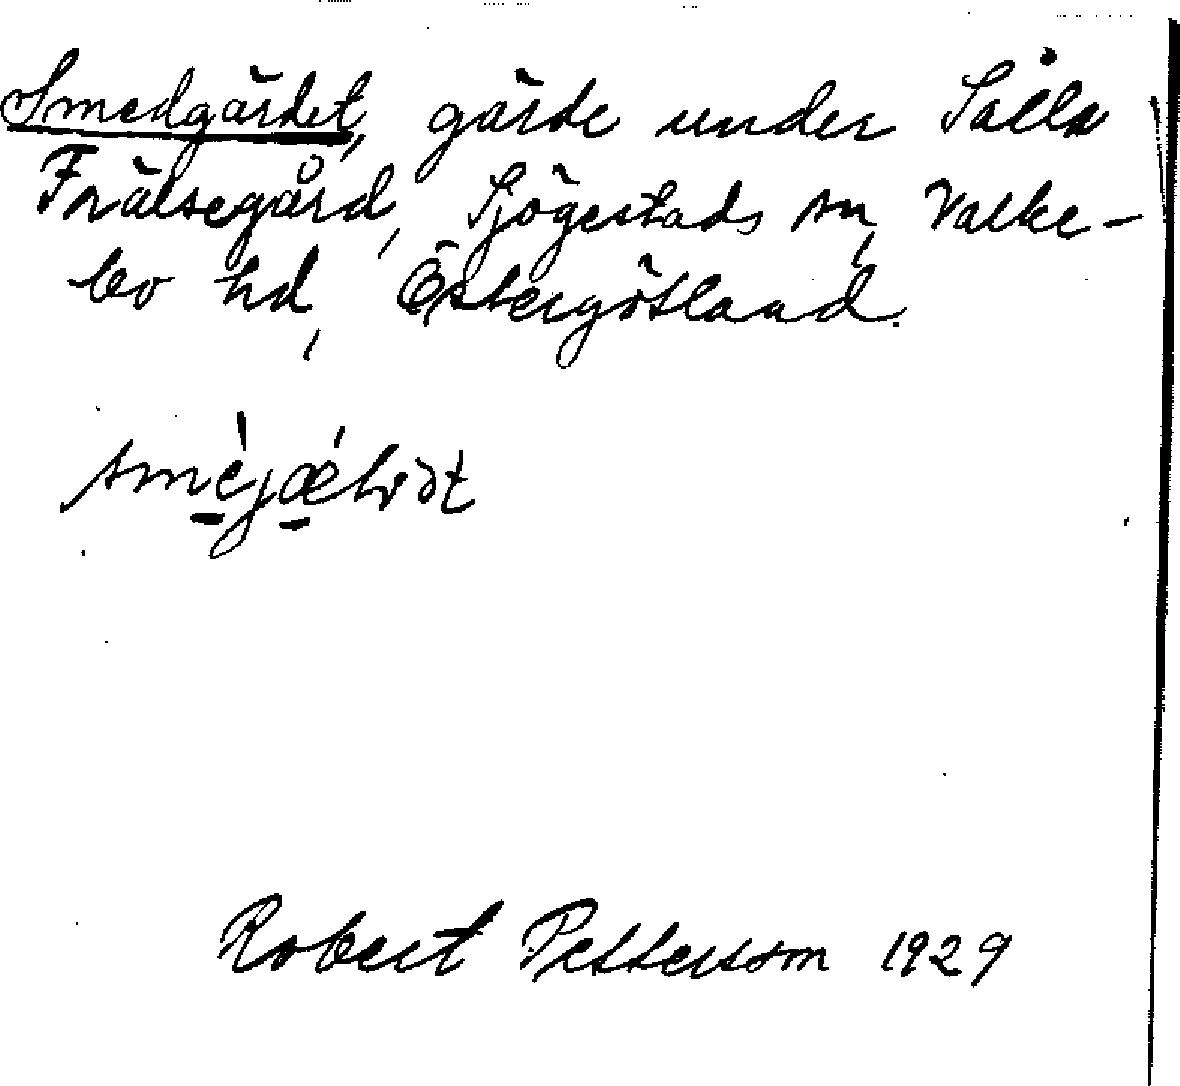 Smedgärdet, gärde under Sålla
Frälsegård, Sjögestads sn, Valke-
bo hd, Östergötland.
Robert Pettersson 1929